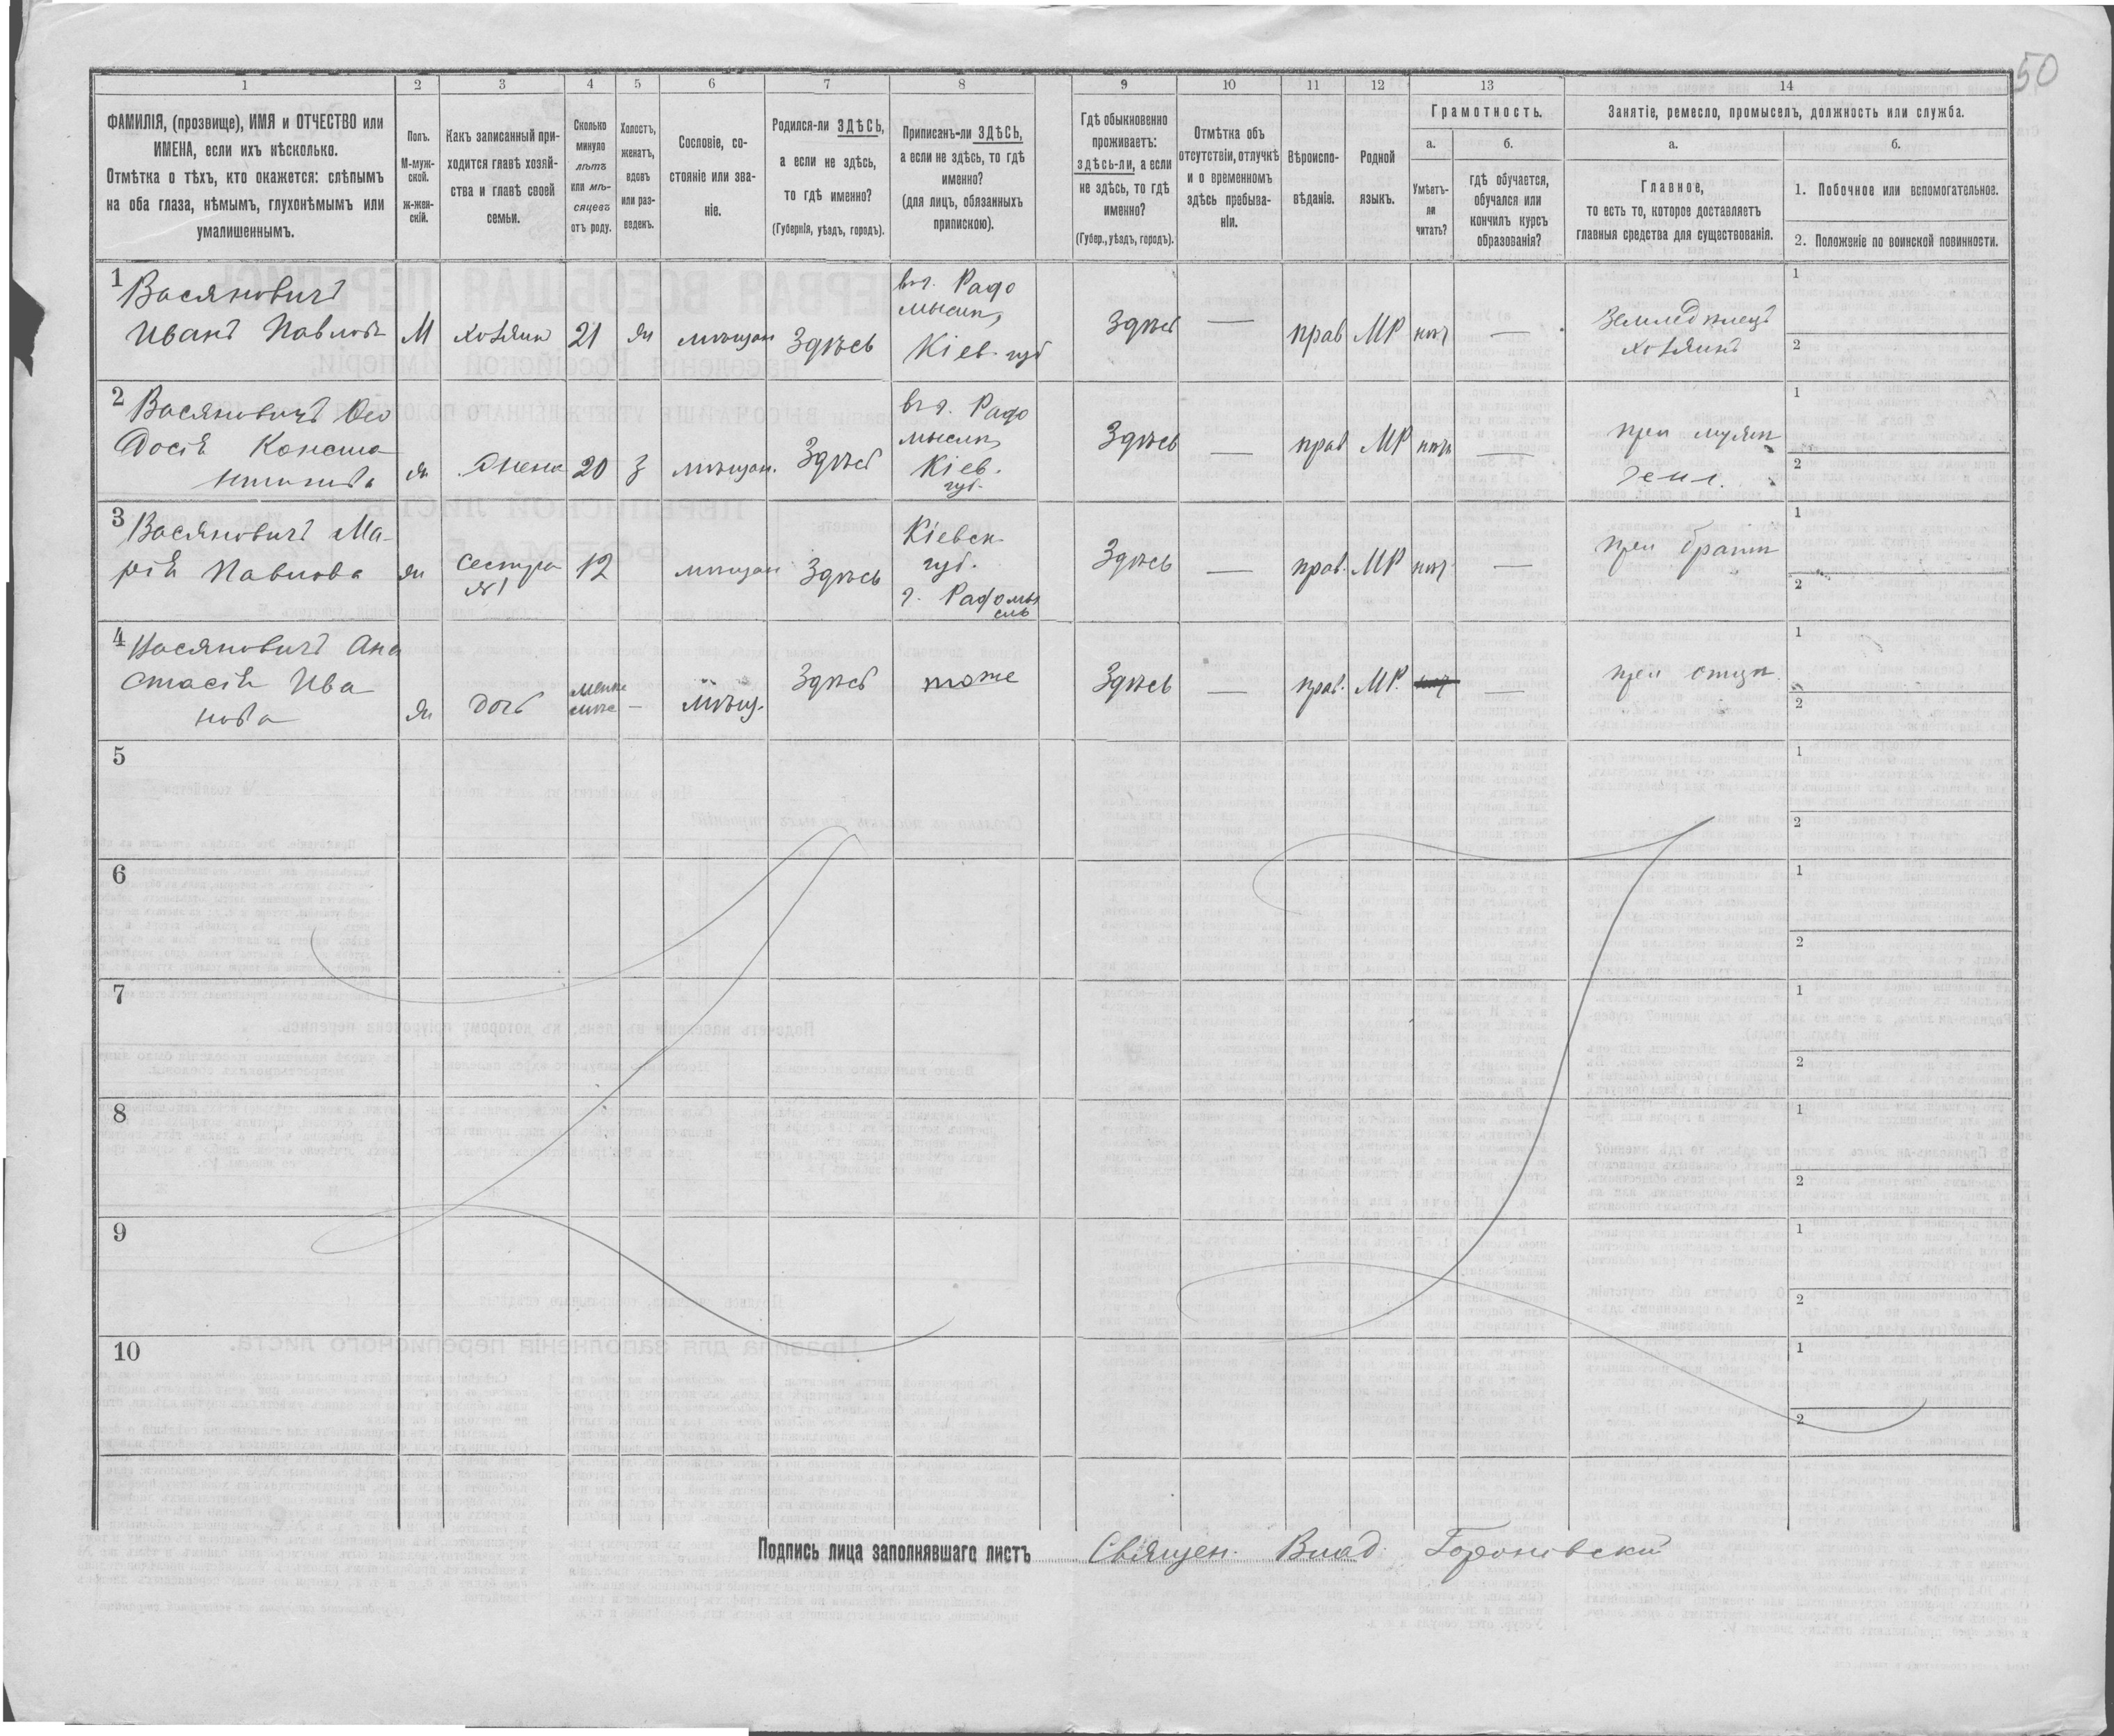 50
1 2 3 4 5 6 7 8 9 10 11 12 13 14
ФАМИЛІЯ, (прозвище), ИМЯ и ОТЧЕСТВО или
ИМЕНА, если ихъ нѣсколько.
Отмѣтка о тѣхъ, кто окажется: слѣпымъ
на оба глаза, нѣмымъ, глухонѣмымъ или
умалишеннымъ.
Полъ.
М-муж-
ской.
ж-жен-
скій.
Какъ записанный при-
ходится главѣ хозяй-
ства и главѣ своей
семьи.
Сколько
минуло
лѣтъ
или мѣ-
сяцевъ
отъ роду.
Холостъ,
женатъ,
вдовъ
или раз-
веденъ.
Сословіе, со-
стояніе или зва-
ніе.
Родился-ли ЗДѢСЬ,
а если не здѣсь,
то гдѣ именно?
(Губернія, уѣздъ, городъ).
Приписанъ-ли ЗДѢСЬ,
а если не здѣсь, то гдѣ
именно?
(для лицъ, обязанныхъ
припискою).
Гдѣ обыкновенно
проживаетъ:
здѣсь-ли, а если
не здѣсь, то гдѣ
именно?
(Губер., уѣздъ, городъ).
Отмѣтка объ
отсутствіи, отлучкѣ
и о временномъ
здѣсь пребыва-
ніи.
Вѣроиспо-
вѣданіе.
Родной
языкъ.
Грамотность.
а.
Умѣетъ-
ли
читать?
б.
гдѣ обучается,
обучался или
кончилъ курсъ
образованія?
Занятіе, ремесло, промыселъ, должность или служба.
а.
Главное,
то есть то, которое доставляетъ
главныя средства для существованія.
б.
1. Побочное или вспомогательное.
2. Положеніе по воинской повинности.
1 Васяновичъ
Иванъ Павловъ
М
хозяинъ
21
ж
мѣщан
Здѣсь
въ г. Радо
мысль,
Кіев. губ
Здѣсь
—
прав
МР
нѣт
—
Земледѣлецъ
хозяинъ
1
2
2 Васяновичъ Ѳео
досія Конста
нтинова
ж
жена
20
З
мѣщан.
Здѣсь
въ г. Радо
мысль,
Кіев.
губ.
Здѣсь
—
прав
МР
нѣт
—
при мужѣ
земл.
1
2
3 Васяновичъ Ма-
рія Павлова
ж
сестра
№1
12
мѣщан
Здѣсь
Кіевск.
губ.
г. Радомы
сль
Здѣсь
—
прав.
МР
нѣт
—
при братѣ
1
2
4 Васяновичъ Ана
стасія Ива
нова
ж
дочь
—
мѣщ.
Здѣсь
тоже
Здѣсь
—
прав.
МР.
—
при отцѣ.
1
2
5
1
2
6
1
2
7
1
2
8
1
2
9
1
2
10
1
2
Подпись лица заполнявшаго листъ Священ. Влад.